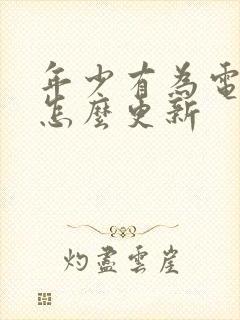 年少有為電
怎麼更新
灼盡雲崖